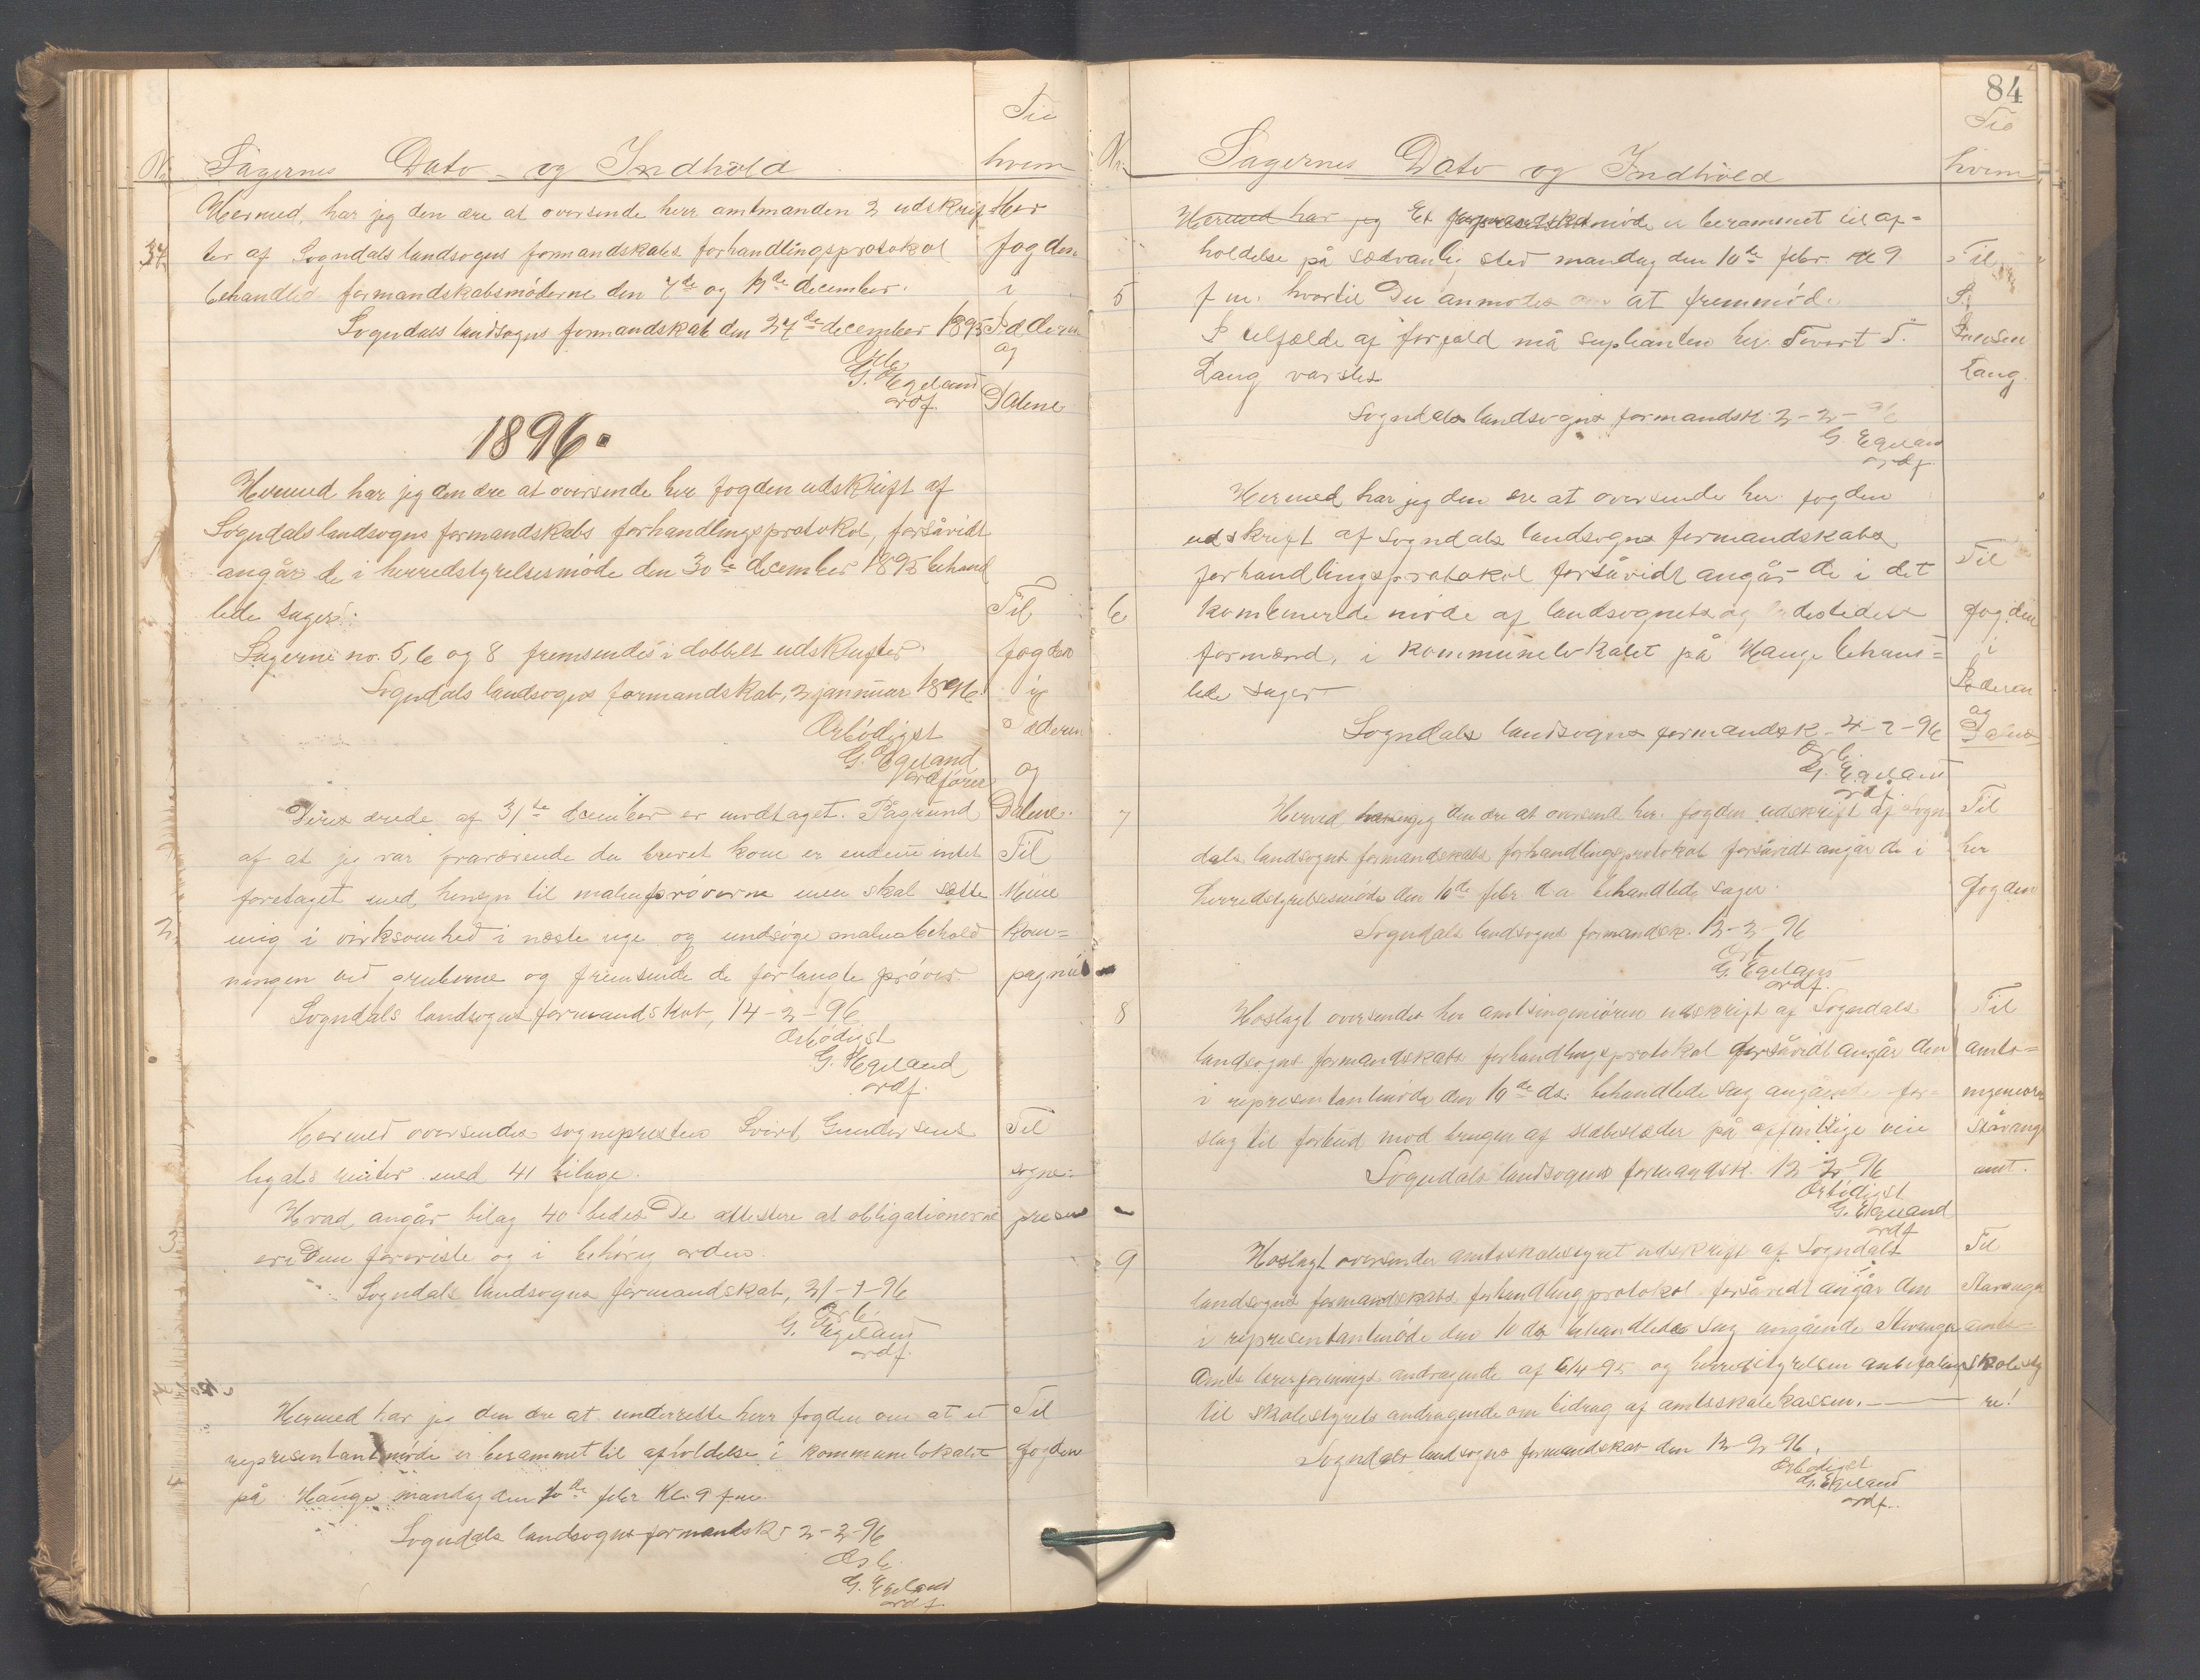 Til
No Sagernes Dato og Indhold hvem
Hermed har jeg den ære at oversende herr amtmanden 2 udskrif Herr
34 ter af Sogndals landsogns formandskabs forhandlingsprotokol fogden
behandled formandskabsmøderne den 7de og december. i
Sogndals landsogns formandskab den 27de december 1895 Jæderen
Ærb. og
G. Egeland
ordf. Dalene
1896.
Hermed har jeg den ære at oversende herr fogden udskrift af
1 Sogndals landsogns formandskabs forhandlingsprotokol, forsåvidt
angår de i herredstyrelsesmøde den 30te december 1895 behand
lede sager. Til
Sagerne no. 5, 6 og 8 fremsendes i dobbelt udskrifter. fogden
Sogndals landsogns formandskab, 2 januar 1896. i
Ærbødigst Jæderen
G. Egeland
ordfører og
Deres ærede af 31te december er modtaget. Pågrund Dalene.
af at jeg var fraværende da brevet kom er endnu intet Til
foretaget med hensyn til malmprøverne men skal sætte
2 mig i virksomhed i næste uge og undsøge malmbehold kom=
ningen ved gruberne og fremsende de forlangte prøver. pagnie
Sogndals landsogns formandskab, 14-2-96
Ærbødigst
G. Egeland
ordf.
Hermed oversendes sognepresten Sivert Gundersens Til
legats med 41 bilage. sogne=
Hvad angår bilag 40 bedes De attestere at obligationerne presten
3 ere Dem foreviste og i behørig orden.
Sogndals landsogns formandskab, 31-1-96
Ærb.
G. Egeland
ordf.
Hermed har jeg den ære at underrette herr fogden om at et Til
4 representantmøde er berammet til afholdelse i kommunelokalet fogden
på Hauge mandag den 10de febr kl. 9 fm.
Sogndals landsogns formandsk. 2-2-96
Ærb.
G. Egeland
ordf.
84
Til
No Sagernes Dato og Indhold hvem
Hermed har jeg Et formandskabsmøde er berammet til af=
holdelse på sædvanlig sted mandag den 10de febr. kl 9 Til
5 f m. hvortil De anmodes om at fremmøde S.
I tilfælde af forfald må suplianten hr. Sivert S.
Laug varsles Laug.
Sogndals landsogns formandsk. 2-2-96
G. Egeland
ordf.
Hermed har jeg den ære at oversende hr. fogden
udskrift af Sogndals landsogns formandskabs
forhandlingsprotokol forsåvidt angår de i det Til
6 kombinerede møde af landsognets og ladestedets fogden
formænd, i kommunelokalet på Hauge behand= i
lede sager Jæderen
Sogndals landsogns formandsk. 4-2-96 og Dalene
Ærb.
G. Egeland
ordf.
7 Herved har jeg den ære at oversende hr. fogden udskrift af Sogn Til
dals landsogns formandskabs forhandlingsprotokol forsåvidt angår de i herr
herredstyrelsesmøde den 10de febr d a behandlede sager. fogden
Sogndals landsogns formandsk. 12-2-96
Ærb.
G. Egeland
ordf.
8 Hoslagt oversendes herr amtsingeniøren udskrift af Sogndals Til
landsogns formandskabs forhandlingsprotokol forsåvidt angår den amts=
i representantmøde den 10de ds. behandlede sag angående for= ingeniøren
slag til forbud mod brugen af slæbeslæder på offentlige veie Stavanger
Sogndals landsogns formandsk. 12-2-96 amt.
Ærbødigst
G. Egeland
ordf
9 Hoslagt oversendes amtsskolestyret udskrift af Sogndals Til
landsogns formandskabs forhandlingsprotokol forsåvidt angår den Stavanger
i representantmøde den 10 ds behandlede sag angående Stavanger amts
Amts lærerforenings andragende af 6/4-95 og herredstyrelsen anbefaling skolesty
til skolestyrets andragende om bidrag af amtsskolekassen. re!
Sogndals landsogns formandskab den 12-2-96.
Ærbødigst
G. Egeland
ordf.